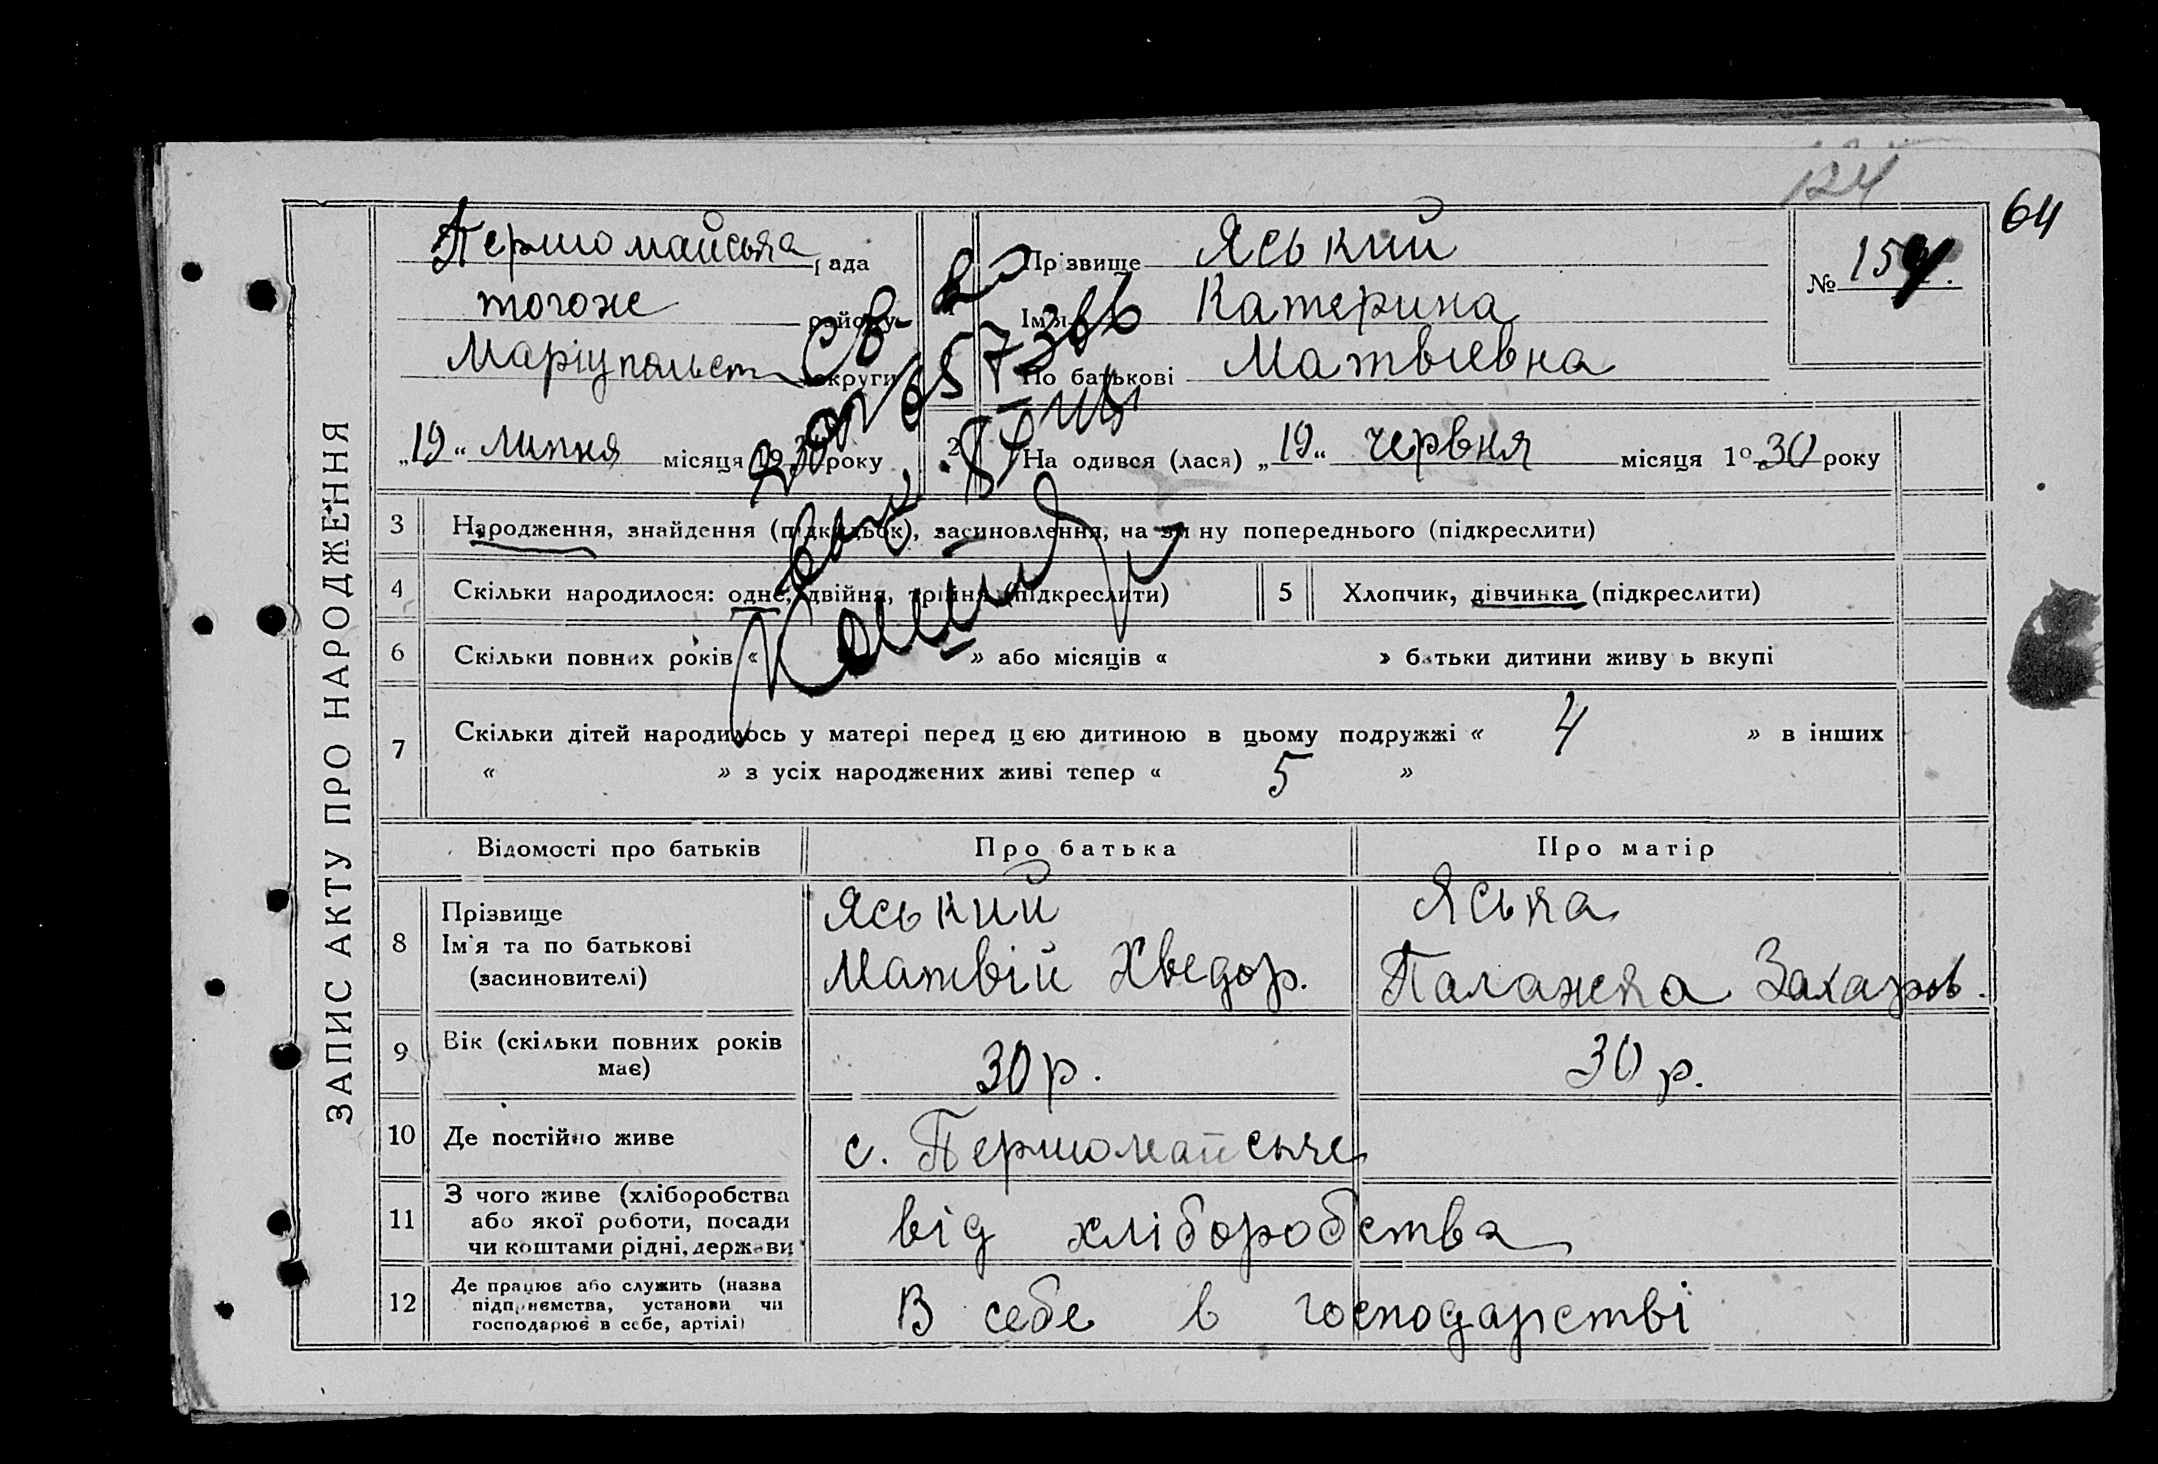 124
64
ЗАПИС АКТУ ПРО НАРОДЖЕННЯ
Першомайська рада
тогож району
Маріупольськ округи
„19“ липня місяця 1930 року
Прізвище Яський
Ім'я Катерина
По батькові Матвіевна
№ 154.
2 На одився (лася) „19“ червня місяця 1930 року
3 Народження, знайдення (підкидьок), засиновлення, на зміну попереднього (підкреслити)
4 Скільки народилося: одне, двійня, трійня (підкреслити)
5 Хлопчик, дівчинка (підкреслити)
6 Скільки повних років « » або місяців « » батьки дитини живу ь вкупі
7 Скільки дітей народилось у матері перед цією дитиною в цьому подружжі « 4 » в інших
« » з усіх народжених живі тепер « 5 »
Відомості про батьків Про батька Про матір
8 Прізвище
Ім'я та по батькові
(засиновителі)
Яський
Матвій Хведор.
Яська
Палажка Захаров.
9 Вік (скільки повних років
має)
30 р.
30 р.
10 Де постійно живе
с. Першомайське
11 З чого живе (хліборобства
або якої роботи, посади
чи коштами рідні, держави
від хліборобства
12 Де працює або служить (назва
підприємства, установи чи
господарює в себе, артілі)
В себе в господарстві